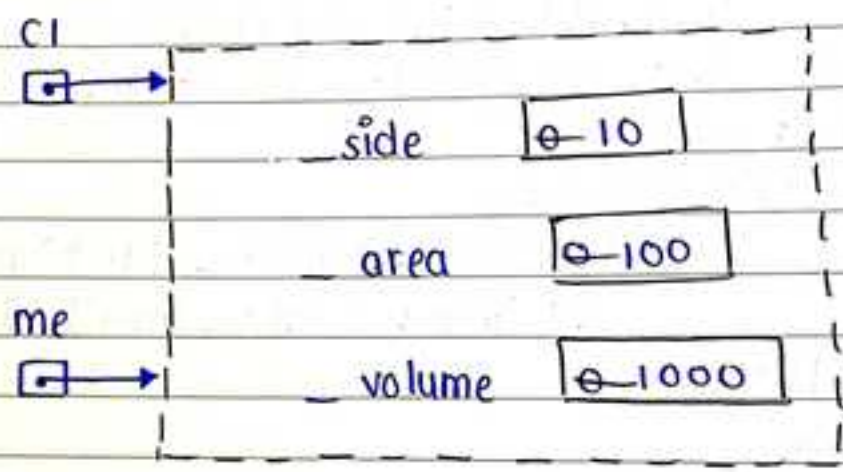 C1
_side 0 10
_area 0 100
me
_volume 0 1000